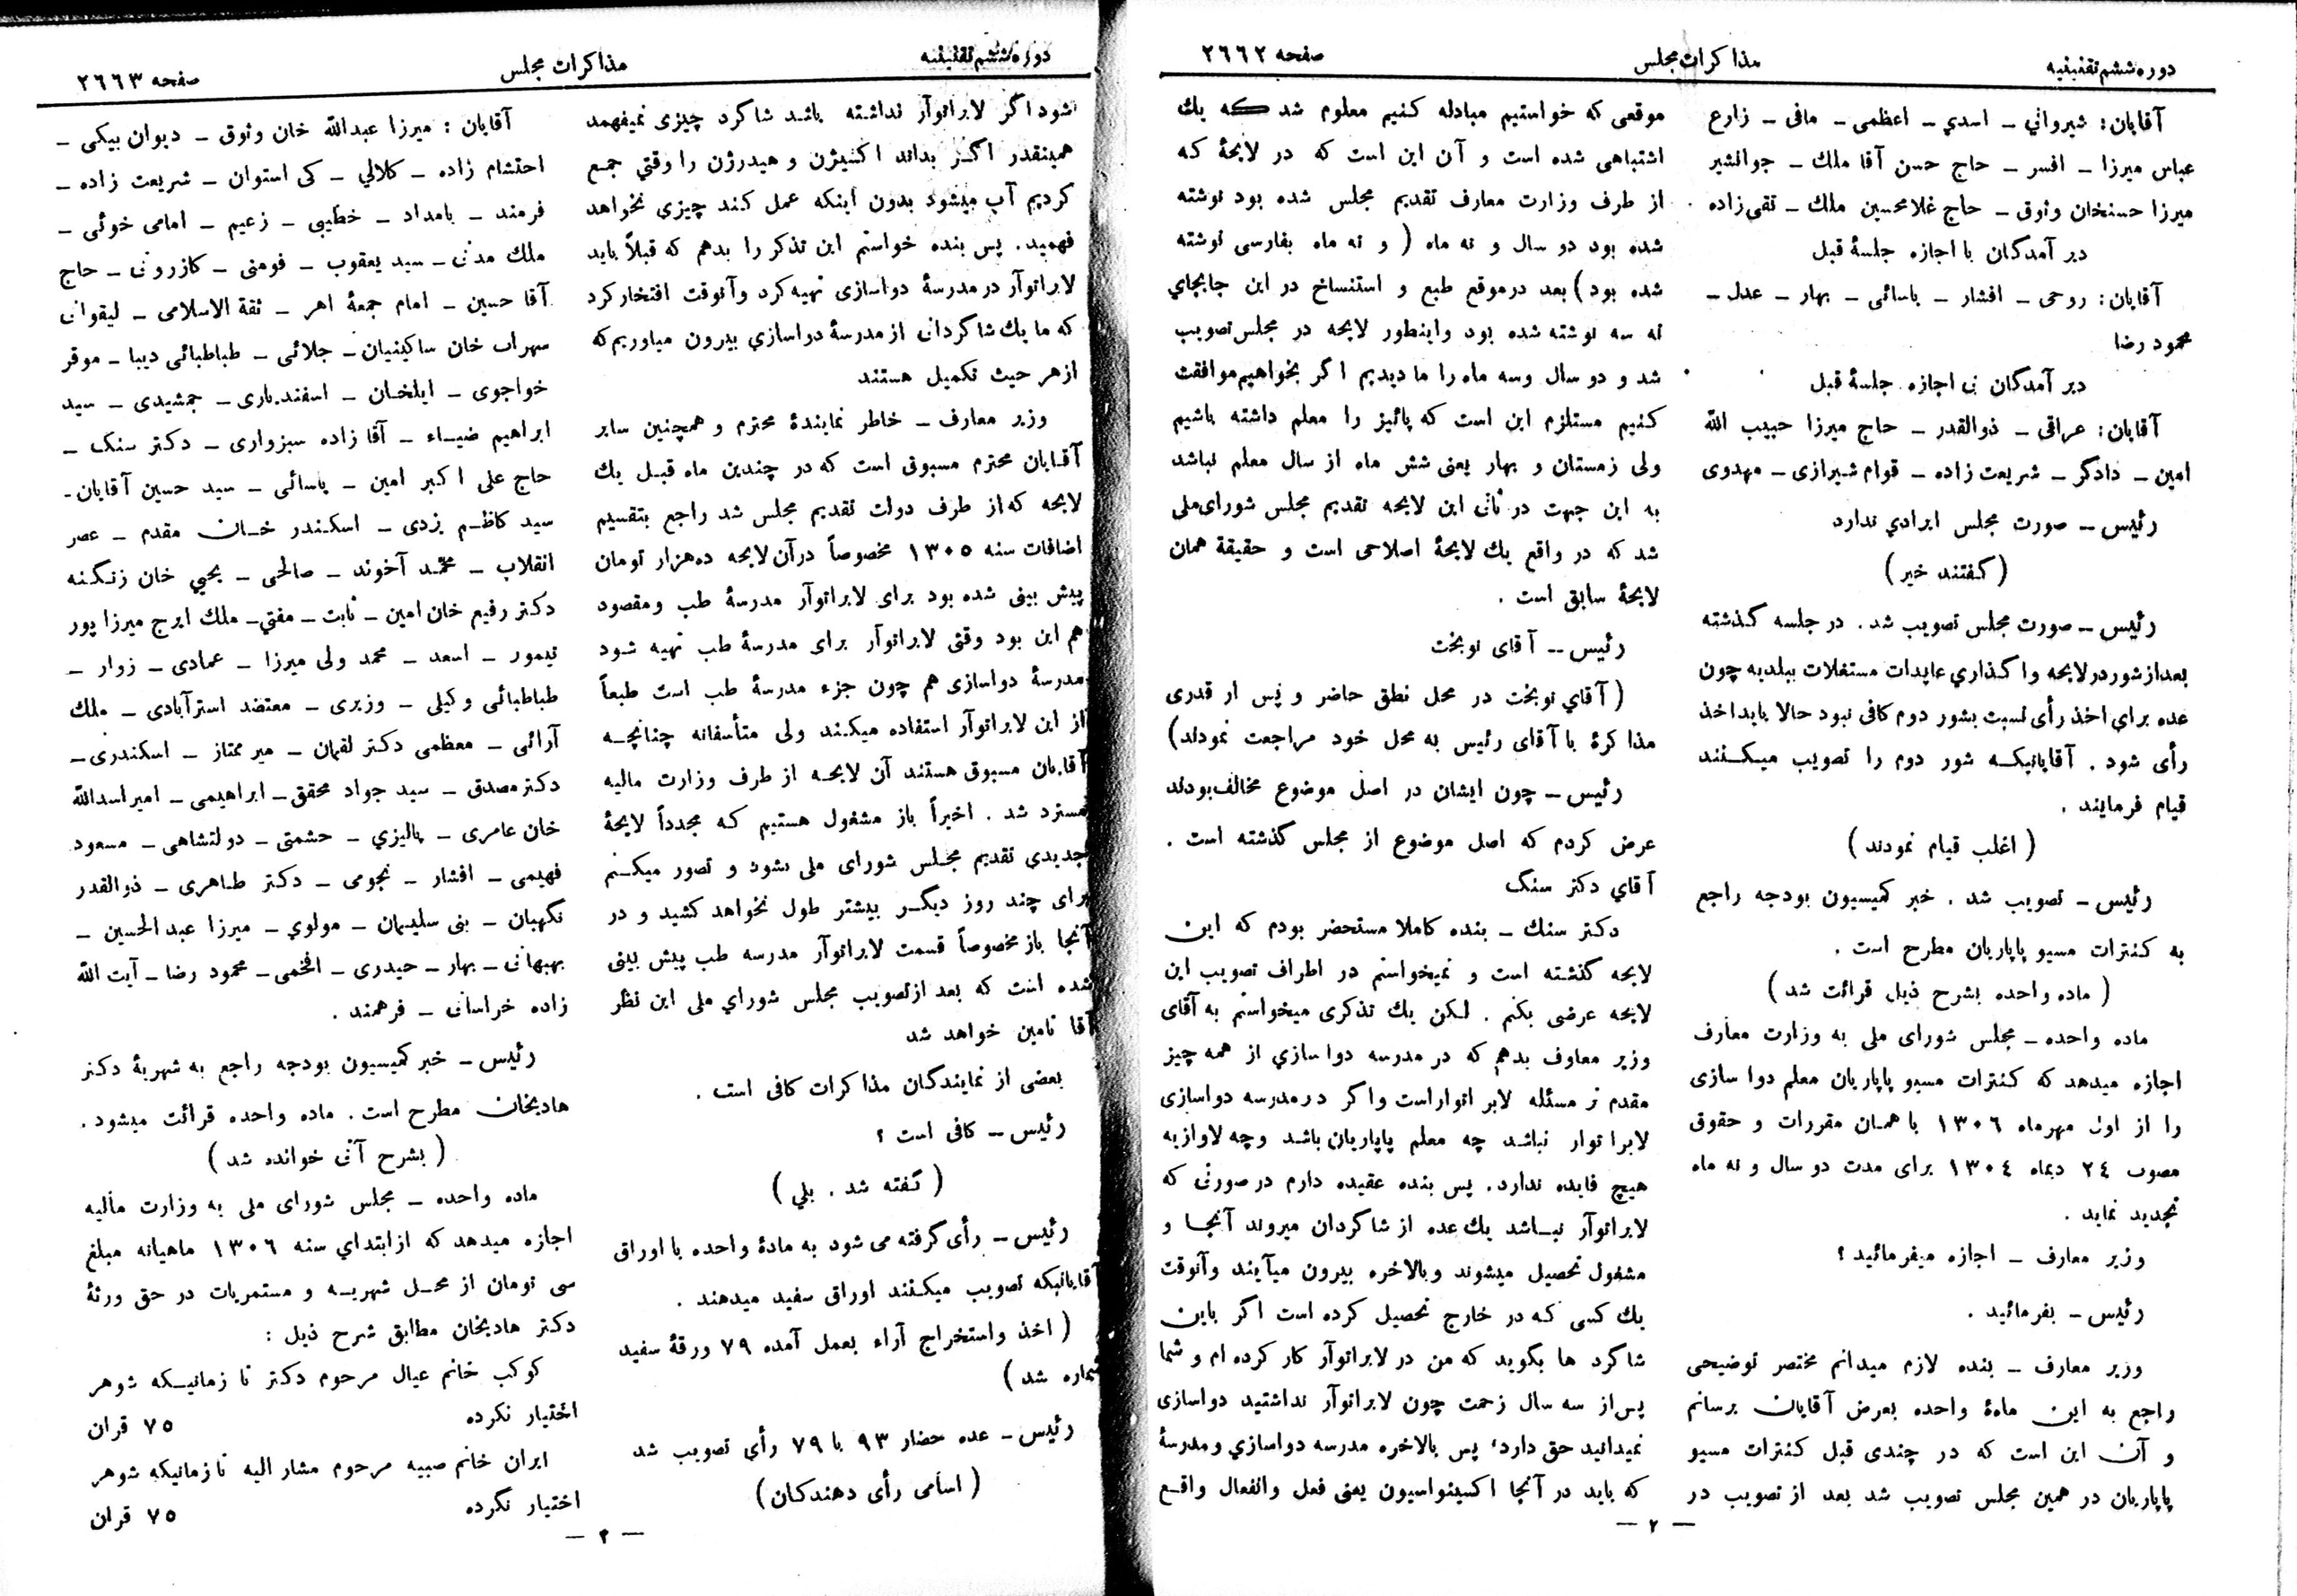 دوره ششم تقنینیه
مذاکرات مجلس
صفحه ۲۶۶۲
آقایان: شیروانی ـ اسدی ـ اعظمی ـ مافی ـ زارع
عباس میرزا ـ افسر ـ حاج حسن آقا ملك ـ جوانشیر
میرزا حسنخان وثوق ـ حاج غلامحسین ملك ـ تقی‌زاده
دیر آمدگان با اجازه جلسهٔ قبل
آقایان: روحی ـ افشار ـ یاسائی ـ بهار ـ عدل ـ
محمود رضا
دیر آمدگان بی اجازه جلسهٔ قبل
آقایان: عراقی ـ ذوالقدر ـ حاج میرزا حبیب الله
امین ـ دادگر ـ شریعت زاده ـ قوام شیرازی ـ مهدوی
رئیس ـ صورت مجلس ایرادي ندارد
(گفتند خیر)
رئیس ـ صورت مجلس تصویب شد. در جلسه گذشته
بعد از شور در لایحه واگذاري عایدات مستغلات ببلدیه چون
عده برای اخذ رأی نسبت بشور دوم کافی نبود حالا باید اخذ
رأی شود. آقایانیکه شور دوم را تصویب میکنند
قیام فرمایند.
(اغلب قیام نمودند)
رئیس ـ تصویب شد. خبر کمیسیون بودجه راجع
به کنترات مسیو پاپاریان مطرح است.
(ماده واحده بشرح ذیل قرائت شد)
ماده واحده ـ مجلس شورای ملی به وزارت معارف
اجازه میدهد که کنترات مسیو پاپاریان معلم دوا سازی
را از اول مهرماه ۱۳۰۶ با همان مقررات و حقوق
مصوب ۲۴ دیماه ۱۳۰۴ برای مدت دو سال و نه ماه
تجدید نماید.
وزیر معارف ـ اجازه میفرمائید؟
رئیس ـ بفرمائید.
وزیر معارف ـ بنده لازم میدانم مختصر توضیحی
راجع به این مادهٔ واحده بعرض آقایان برسانم
و آن این است که در چندی قبل کنترات مسیو
پاپاریان در همین مجلس تصویب شد بعد از تصویب در
موقعی که خواستیم مبادله کنیم معلوم شد که یك
اشتباهی شده است و آن این است که در لایحهٔ که
از طرف وزارت معارف تقدیم مجلس شده بود نوشته
شده بود دو سال و نه ماه (و نه ماه بفارسی نوشته
شده بود) بعد در موقع طبع و استنساخ در این جا بجاي
نه سه نوشته شده بود و اینطور لایحه در مجلس تصویب
شد و دو سال و سه ماه را ما دیدیم اگر بخواهیم موافقت
کنیم مستلزم این است که پائیز را معلم داشته باشیم
ولی زمستان و بهار یعنی شش ماه از سال معلم نباشد
به این جهت در ثانی این لایحه تقدیم مجلس شورای ملی
شد که در واقع یك لایحهٔ اصلاحی است و حقیقة همان
لایحهٔ سابق است.
رئیس ـ آقای نوبخت
(آقاي نوبخت در محل نطق حاضر و پس از قدری
مذاکرهٔ با آقای رئیس به محل خود مراجعت نمودند)
رئیس ـ چون ایشان در اصل موضوع مخالف بودند
عرض کردم که اصل موضوع از مجلس گذشته است.
آقاي دکتر سنگ
دکتر سنك ـ بنده کاملا مستحضر بودم که این
لایحه گذشته است و نمیخواستم در اطراف تصویب این
لایحه عرضی بکنم. لکن یك تذکری میخواستم به آقای
وزیر معاوف بدهم که در مدرسه دوا سازي از همه چیز
مقدم تر مسئله لابراتوار است و اگر در مدرسه دواسازی
لابراتوار نباشد چه معلم پاپاریان باشد و چه لاوازیه
هیچ فایده ندارد. پس بنده عقیده دارم در صورتی که
لابراتوآر نباشد یك عده از شاگردان میروند آنجا و
مشغول تحصیل میشوند و بالاخره بیرون میآیند و آنوقت
یك کسی که در خارج تحصیل کرده است اگر باین
شاگرد ها بگوید که من در لابراتوآر کار کرده ام و شما
پس از سه سال زحمت چون لابراتوآر نداشتید دواسازی
نمیدانید حق دارد، پس بالاخره مدرسه دواسازي و مدرسهٔ
که باید در آنجا اکسیئواسیون یعنی فعل و انفعال واقع
— ۲ —
دوره ششم تقنینیه
مذاکرات مجلس
صفحه ۲۶۶۳
نشود اگر لابراتوآر نداشته باشد شاگرد چیزی نمیفهمد
همینقدر اگر بداند اکسیژن و هیدرژن را وقتي جمع
کردیم آب میشود بدون اینکه عمل کند چیزی نخواهد
فهمید. پس بنده خواستم این تذکر را بدهم که قبلاً باید
لابراتوآر در مدرسهٔ دواسازی تهیه کرد و آنوقت افتخار کرد
که ما یك شاگردانی از مدرسهٔ دواسازي بیرون میاوریم که
از هر حیث تکمیل هستند
وزیر معارف ـ خاطر نمایندهٔ محترم و همچنین سایر
آقایان محترم مسبوق است که در چندین ماه قبل یك
لایحه که از طرف دولت تقدیم مجلس شد راجع بتقسیم
اضافات سنه ۱۳۰۵ مخصوصاً در آن لایحه ده هزار تومان
پیش بینی شده بود برای لابراتوآر مدرسهٔ طب و مقصود
هم این بود وقتی لابراتوآر برای مدرسهٔ طب تهیه شود
مدرسهٔ دواسازی هم چون جزء مدرسهٔ طب است طبعاً
از این لابراتوآر استفاده میکند ولی متأسفانه چنانچه
آقایان مسبوق هستند آن لایحه از طرف وزارت مالیه
مسترد شد. اخیراً باز مشغول هستیم که مجدداً لایحهٔ
جدیدی تقدیم مجلس شورای ملی بشود و تصور میکنم
برای چند روز دیگر بیشتر طول نخواهد کشید و در
آنجا باز مخصوصاً قسمت لابراتوآر مدرسه طب پیش بینی
شده است که بعد از تصویب مجلس شوراي ملی این نظر
آقا تامین خواهد شد
بعضی از نمایندگان مذاکرات کافی است.
رئیس ـ کافی است؟
(گفته شد. بلي)
رئیس ـ رأی گرفته می شود به مادهٔ واحده با اوراق
آقایانیکه تصویب میکنند اوراق سفید میدهند.
(اخذ و استخراج آراء بعمل آمده ۷۹ ورقهٔ سفید
شماره شد)
رئیس ـ عده حضار ۹۳ با ۷۹ رأی تصویب شد
(اسامی رأی دهندگان)
آقایان: میرزا عبدالله خان وثوق ـ دیوان بیگی ـ
احتشام زاده ـ کلالي ـ کی استوان ـ شریعت زاده ـ
فرمند ـ بامداد ـ خطیبی ـ زعیم ـ امامی خوئی ـ
ملك مدنی ـ سید یعقوب ـ فومنی ـ کازرونی ـ حاج
آقا حسین ـ امام جمعهٔ اهر ـ ثقة الاسلامی ـ لیقوانی
سهراب خان ساکینیان ـ جلائی ـ طباطبائی دیبا ـ موقر
خواجوی ـ ایلخان ـ اسفندیاری ـ جمشیدی ـ سید
ابراهیم ضیاء ـ آقا زاده سبزواری ـ دکتر سنگ ـ
حاج علی اکبر امین ـ یاسائی ـ سید حسین آقایان ـ
سید کاظم یزدی ـ اسکندر خان مقدم ـ عصر
انقلاب ـ محمد آخوند ـ صالحی ـ یحیي خان زنگنه
دکتر رفیع خان امین ـ ثابت ـ مفتي ـ ملك ایرج میرزا پور
تیمور ـ اسعد ـ محمد ولی میرزا ـ عمادی ـ زوار ـ
طباطبائی وکیلی ـ وزیری ـ معتضد استرآبادی ـ ملك
آرائی ـ معظمی دکتر لقمان ـ میر ممتاز ـ اسکندری ـ
دکتر مصدق ـ سید جواد محقق ـ ابراهیمی ـ امیر اسدالله
خان عامری ـ پالیزي ـ حشمتی ـ دولتشاهی ـ مسعود
فهیمی ـ افشار ـ نجومی ـ دکتر طاهری ـ ذوالقدر
نگهبان ـ بنی سلیمان ـ مولوي ـ میرزا عبدالحسین ـ
بهبهانی ـ بهار ـ حیدری ـ افخمی ـ محمود رضا ـ آیت الله
زاده خراسانی ـ فرهمند.
رئیس ـ خبر کمیسیون بودجه راجع به شهریهٔ دکتر
هادیخان مطرح است. ماده واحده قرائت میشود.
(بشرح آتی خوانده شد)
ماده واحده ـ مجلس شورای ملی به وزارت مالیه
اجازه میدهد که از ابتداي سنه ۱۳۰۶ ماهیانه مبلغ
سی تومان از محل شهریه و مستمریات در حق ورثهٔ
دکتر هادیخان مطابق شرح ذیل:
کوکب خانم عیال مرحوم دکتر تا زمانیکه شوهر
اختیار نکرده ۷۵ قران
ایران خانم صبیه مرحوم مشار الیه تا زمانیکه شوهر
اختیار نگرده ۷۵ قران
— ۳ —